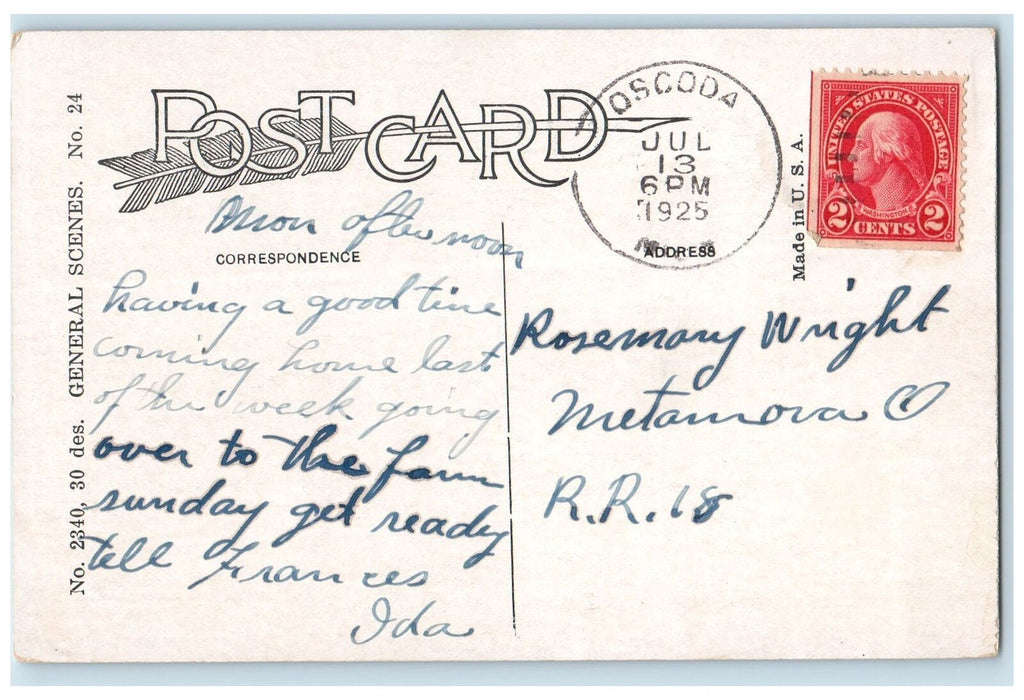 POST CARD
OSCODA
JUL
13
6 PM
1925
UNITED STATES POSTAGE
WASHINGTON
2 CENTS 2
Made in U. S. A.
No. 2340, 30 des. GENERAL SCENES. No. 24
CORRESPONDENCE
ADDRESS
Mon afternoon
having a good time
coming home last
of the week going
over to the farm
sunday get ready
tell Frances
Ida
Rosemary Wright
Metamora O
R.R. 18